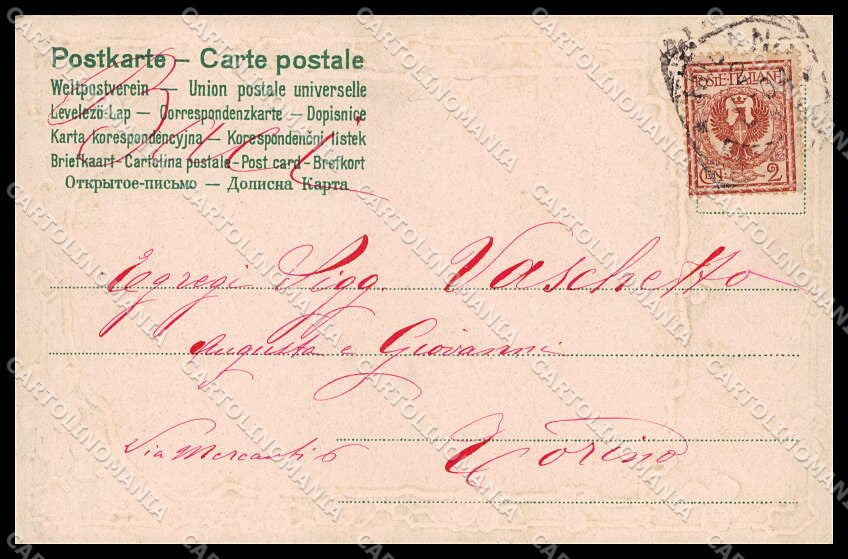 Postkarte – Carte postale
Weltpostverein — Union postale universelle
Levelező-Lap — Correspondenzkarte — Dopisnice
Karta korespondencyjna — Korespondenční lístek
Briefkaart - Cartolina postale - Post card - Brefkort
Открытое-письмо — Дописна Карта
POSTE ITALIANE
CEN. 2
Egregi Sigg. Vaschetto
Augusta e Giovanni
Via Mercanti 6 Torino
CARTOLINOMANIA